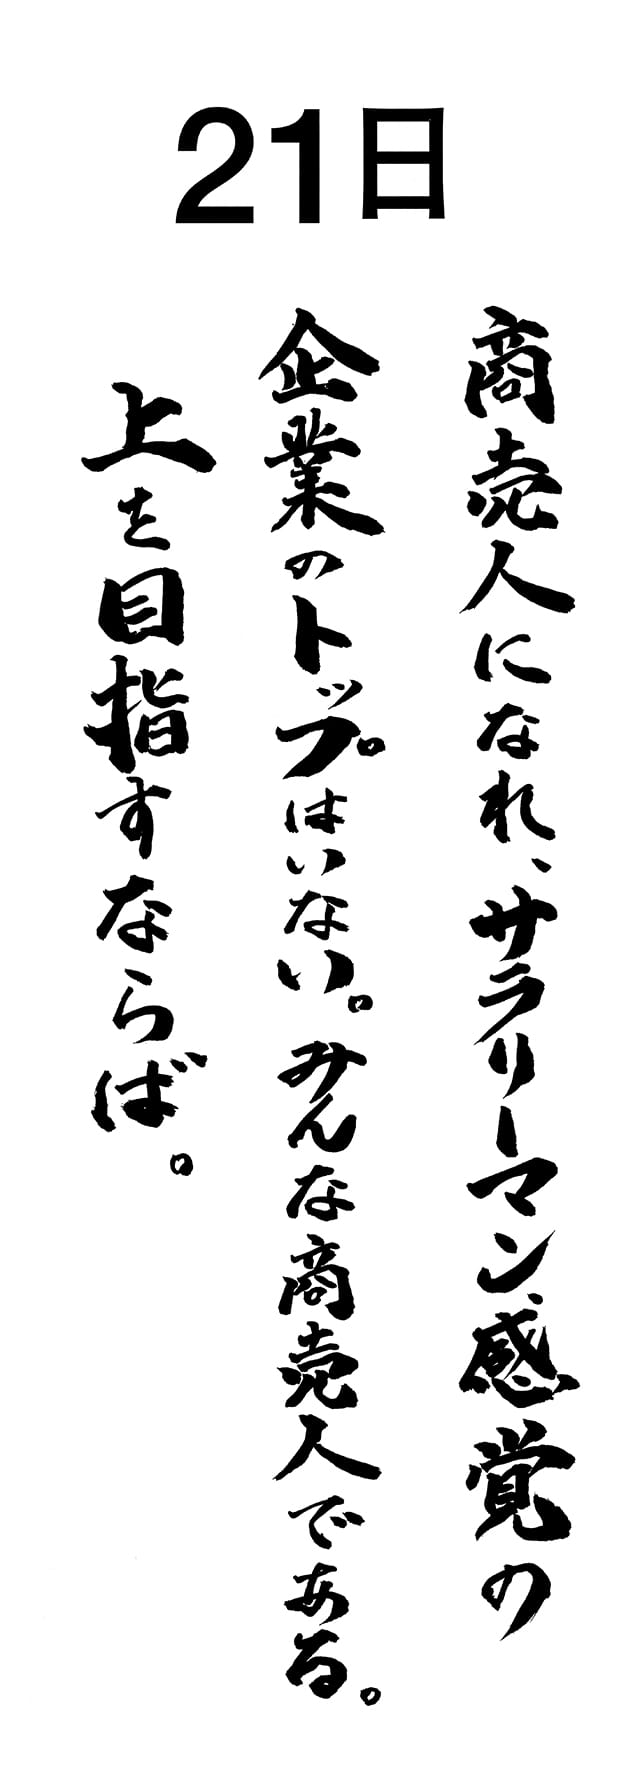 21日
商売人になれ、サラリーマン感覚の
企業のトップはいない。みんな商売人である。
上を目指すならば。